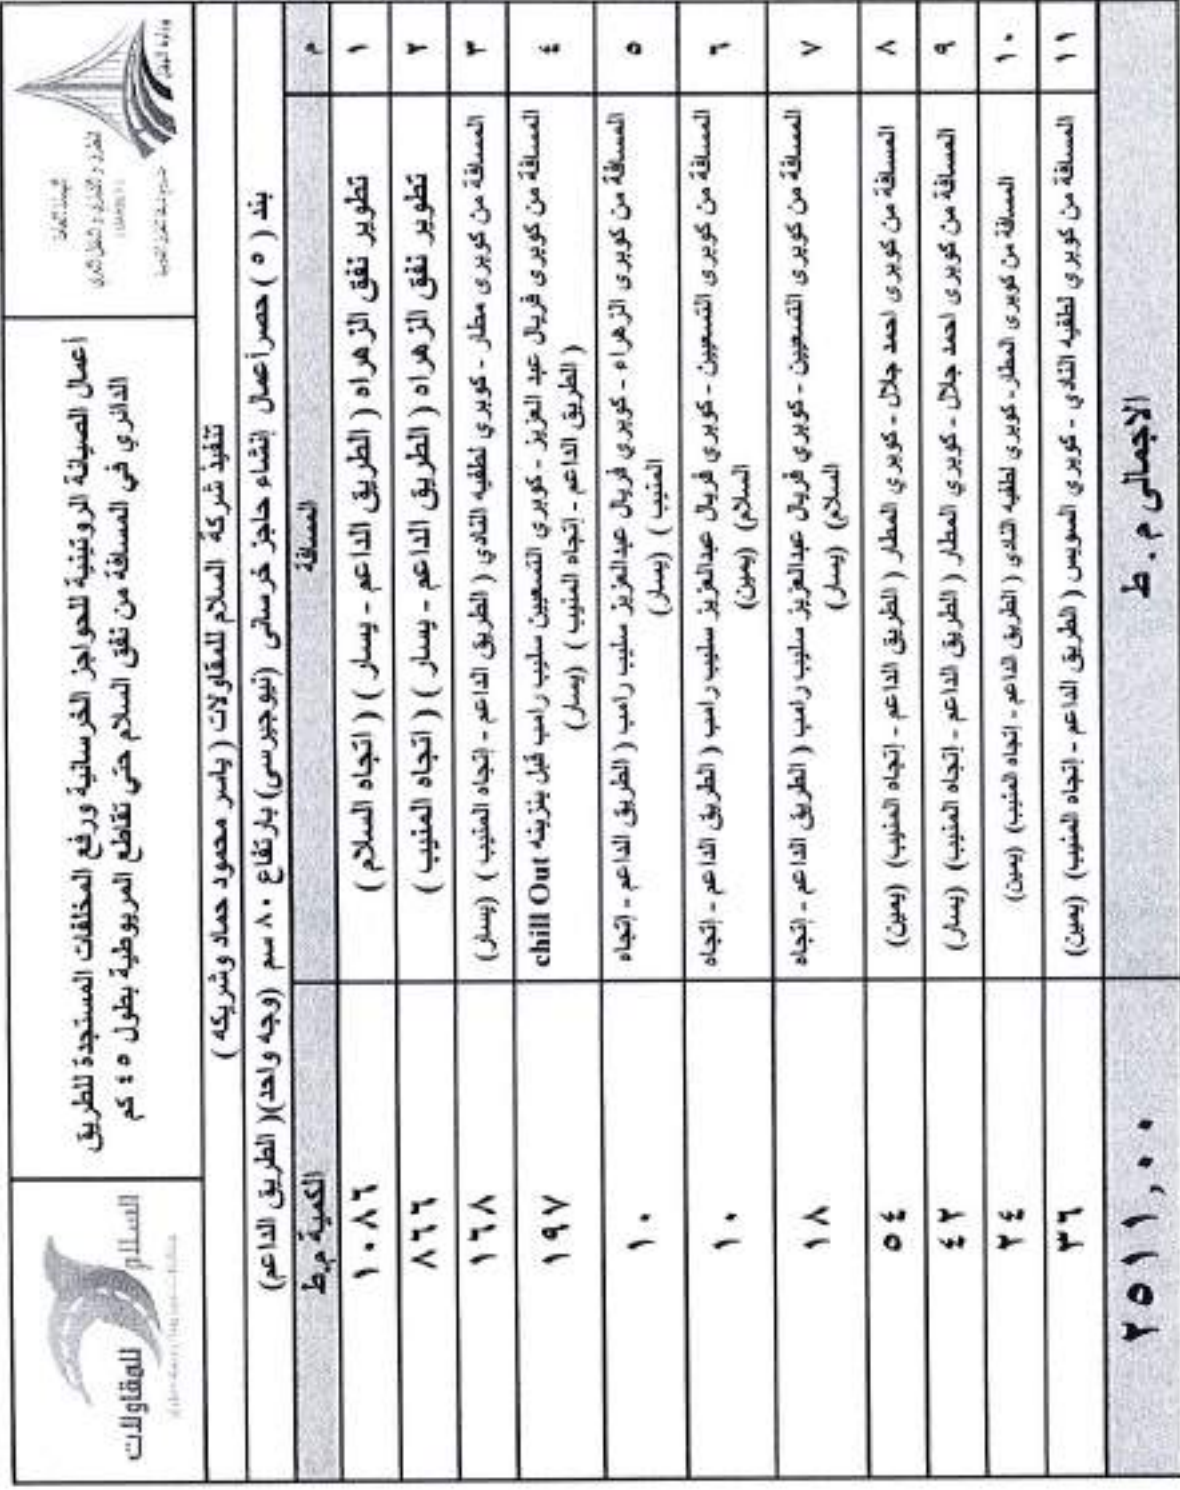 وزارة النقل
الهيئة العامة
للطرق والكباري والنقل البري
(GARBLT)
أعمال الصيانة الروتينية للحواجز الخرسانية ورفع المخلفات المستجدة للطريق
الدائري في المسافة من نفق السلام حتى تقاطع المريوطية بطول ٤٥ كم
السلام
للمقاولات
تنفيذ شركة السلام للمقاولات ( ياسر محمود حماد وشريكه )
بند ( ٥ ) حصر أعمال إنشاء حاجز خرسانى (نيوجيرسى) بارتفاع ٨٠ سم (وجه واحد)( الطريق الداعم)
م المسافة الكمية م.ط
١ تطوير نفق الزهراه ( الطريق الداعم - يسار ) ( اتجاه السلام ) ١٠٨٦
٢ تطوير نفق الزهراه ( الطريق الداعم - يسار ) ( اتجاه المنيب ) ٨٦٦
٣ المسافة من كوبرى مطار - كوبري لطفيه النادي ( الطريق الداعم - إتجاه المنيب ) (يسار) ١٦٨
٤ المسافة من كوبرى فريال عبد العزيز - كوبري التسعيين سليب رامب قبل بنزينه chill Out ١٩٧
( الطريق الداعم - إتجاه المنيب ) (يسار)
٥ المسافة من كوبرى الزهراء - كوبري فريال عبدالعزيز سليب رامب ( الطريق الداعم - إتجاه ١٠
المنيب ) (يسار)
٦ المسافة من كوبرى التسعيين - كوبري فريال عبدالعزيز سليب رامب ( الطريق الداعم - إتجاه ١٠
السلام) (يمين)
٧ المسافة من كوبرى التسعيين - كوبري فريال عبدالعزيز سليب رامب ( الطريق الداعم - إتجاه ١٨
السلام) (يسار)
٨ المسافة من كوبرى احمد جلال - كوبري المطار ( الطريق الداعم - إتجاه المنيب) (يمين) ٥٤
٩ المسافة من كوبرى احمد جلال - كوبري المطار ( الطريق الداعم - إتجاه المنيب) (يسار) ٤٢
١٠ المسافة من كوبرى المطار- كوبري لطفيه النادي ( الطريق الداعم - إتجاه المنيب) (يمين) ٢٤
١١ المسافة من كوبري لطفيه النادي - كوبري السويس ( الطريق الداعم - إتجاه المنيب) (يمين) ٣٦
الاجمالى م . ط ٢٥١١,٠٠